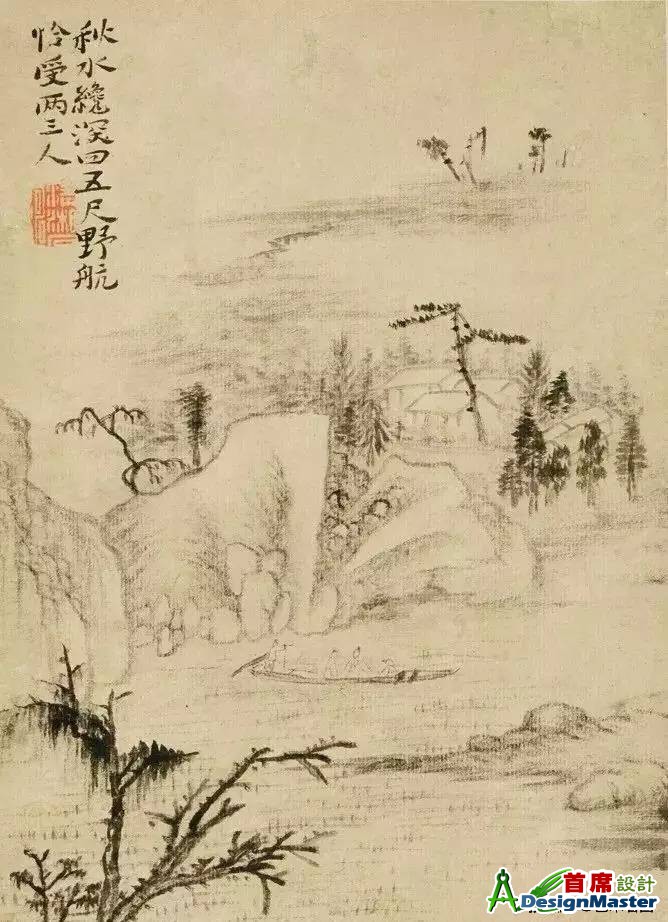 秋水纔深四五尺野航
恰受两三人
首席設計
ADesignMaster